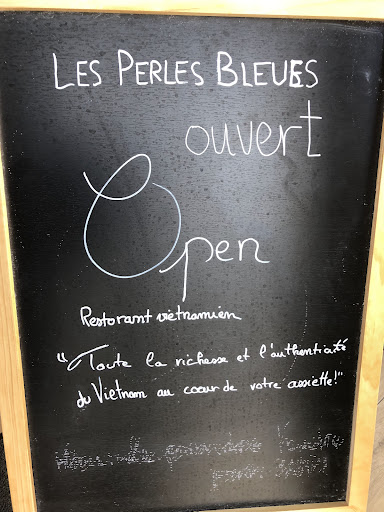 LES PERLES BLEUES
ouvert
Open
Restorant vietnamien
"Toute la richesse et l'authenticité
du Vietnam au coeur de votre assiette!"